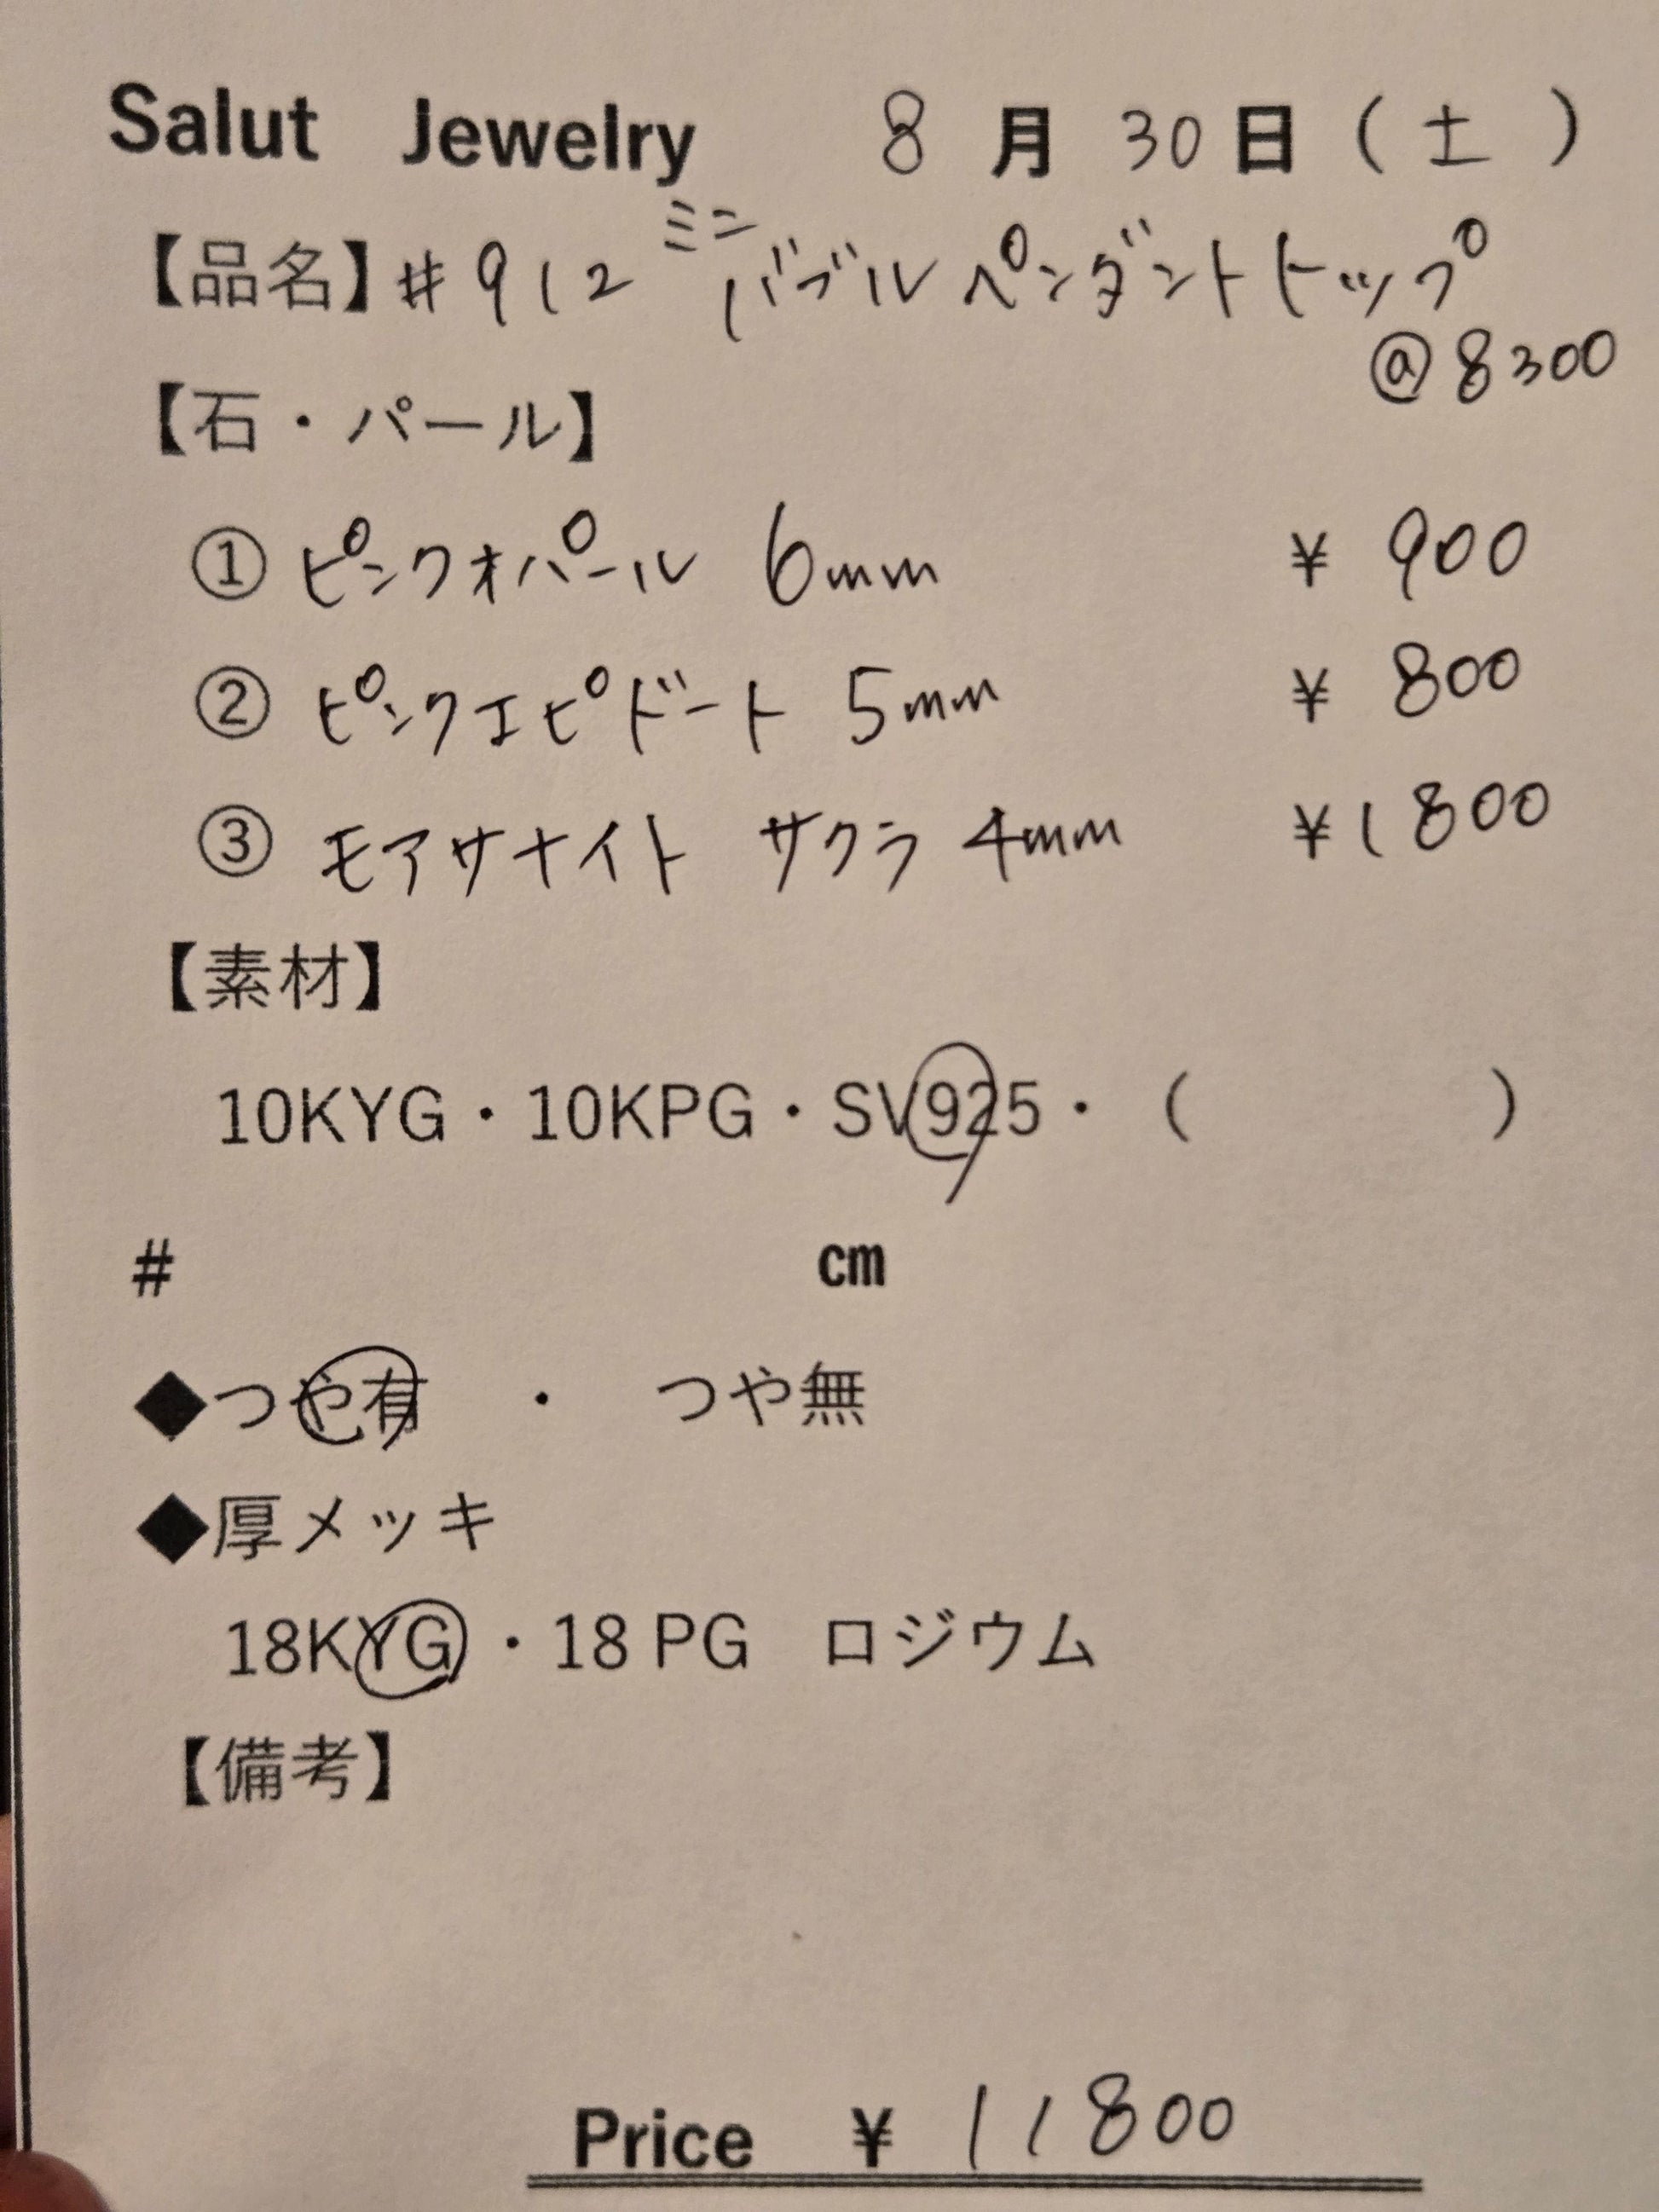 Salut Jewelry 8月30日(土)
【品名】#912 ミニバブルペンダントトップ
@8300
【石・パール】
①ピンクオパール 6mm ¥900
②ピンクエピドート 5mm ¥800
③モアサナイト サクラ 4mm ¥1800
【素材】
10KYG・10KPG・SV925・( )
# cm
◆つや有 ・ つや無
◆厚メッキ
18KYG・18 PG ロジウム
【備考】
Price ¥11800